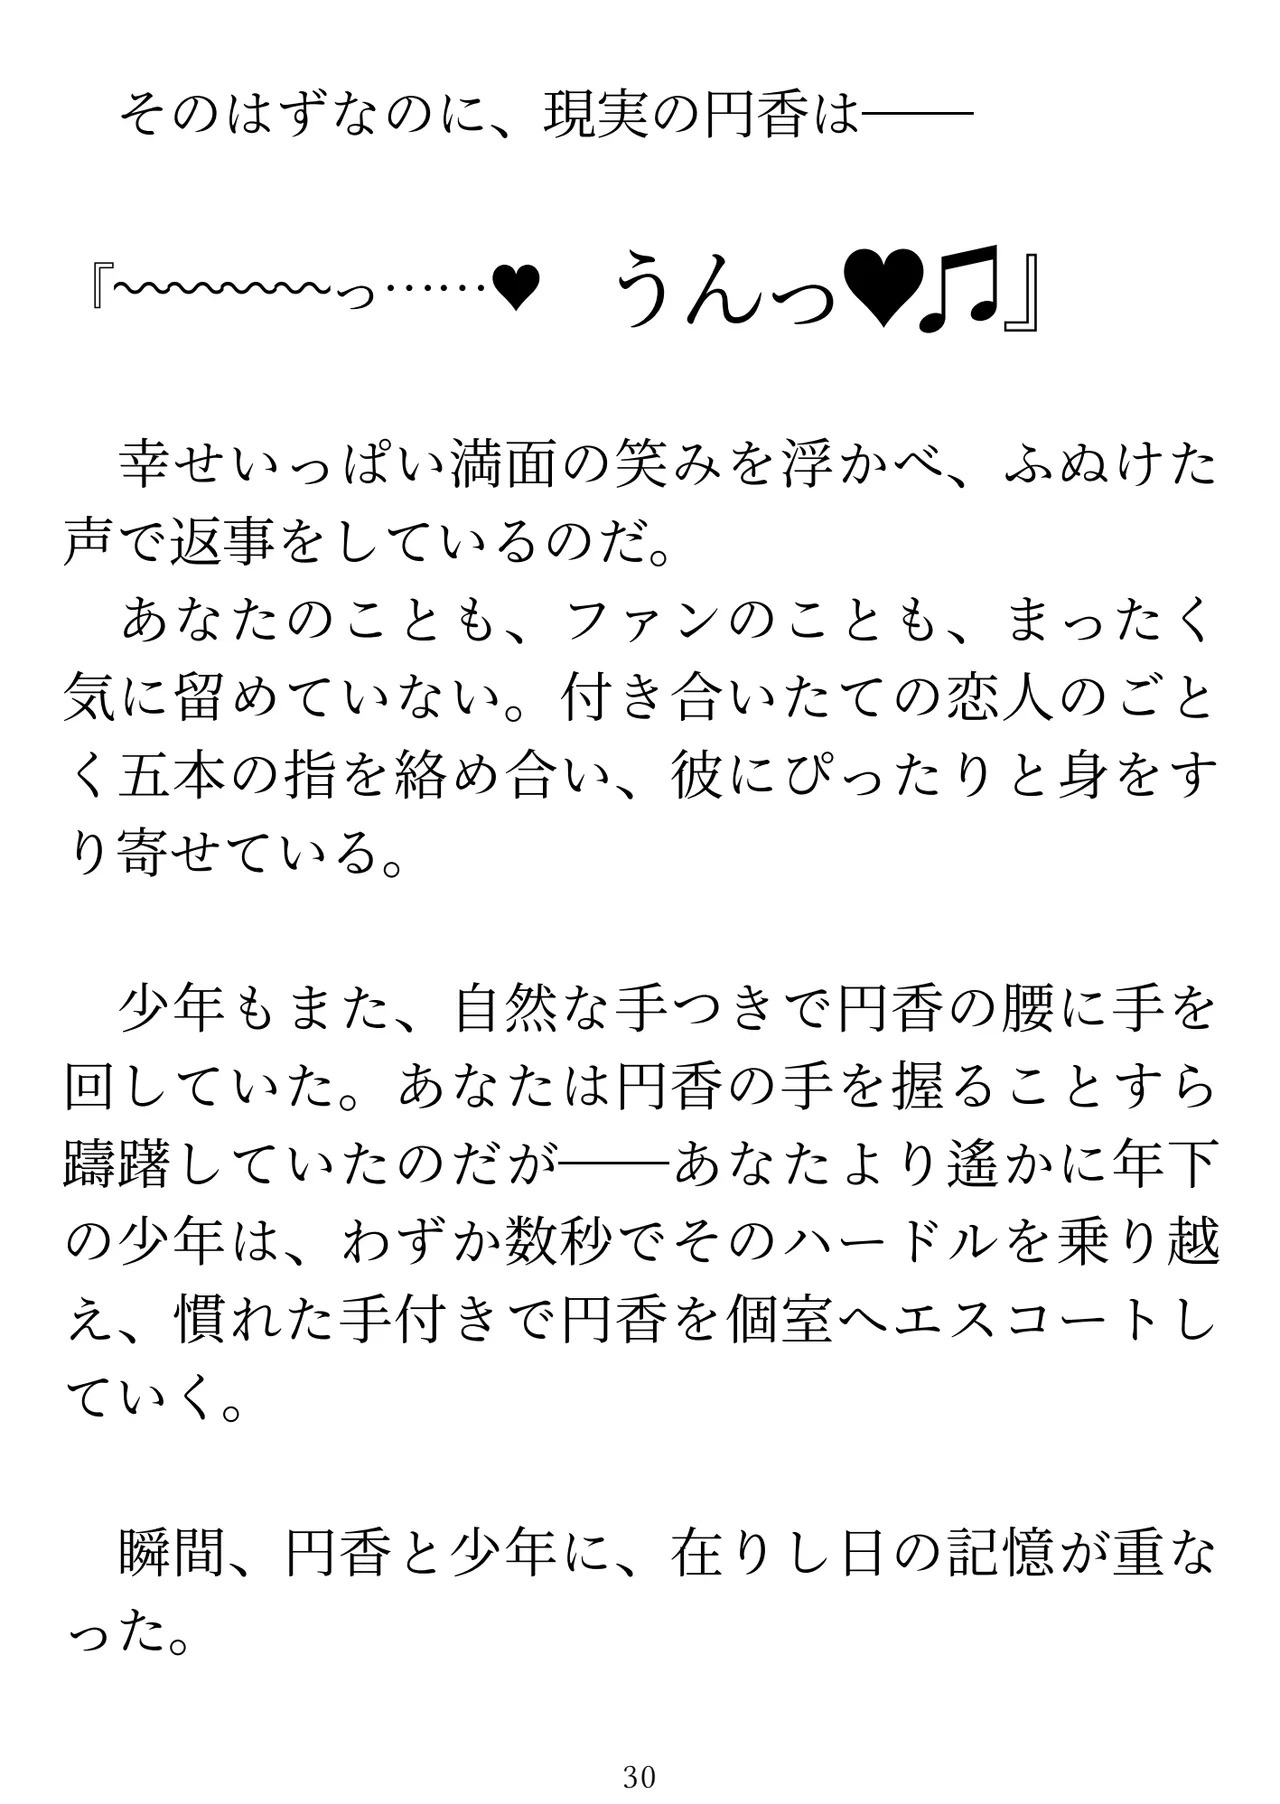 そのはずなのに、現実の円香は――
『〜〜〜〜〜〜〜〜っ……♥　うんっ♥♫』
幸せいっぱい満面の笑みを浮かべ、ふぬけた
声で返事をしているのだ。
あなたのことも、ファンのことも、まったく
気に留めていない。付き合いたての恋人のごと
く五本の指を絡め合い、彼にぴったりと身をす
り寄せている。
少年もまた、自然な手つきで円香の腰に手を
回していた。あなたは円香の手を握ることすら
躊躇していたのだが――あなたより遙かに年下
の少年は、わずか数秒でそのハードルを乗り越
え、慣れた手付きで円香を個室へエスコートし
ていく。
瞬間、円香と少年に、在りし日の記憶が重な
った。
30